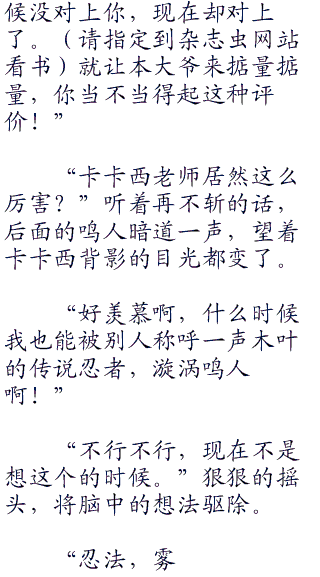 候没对上你，现在却对上
了。（请指定到杂志虫网站
看书）就让本大爷来掂量掂
量，你当不当得起这种评
价！”
“卡卡西老师居然这么
厉害？”听着再不斩的话，
后面的鸣人暗道一声，望着
卡卡西背影的目光都变了。
“好羡慕啊，什么时候
我也能被别人称呼一声木叶
的传说忍者，漩涡鸣人
啊！”
“不行不行，现在不是
想这个的时候。”狠狠的摇
头，将脑中的想法驱除。
“忍法，雾